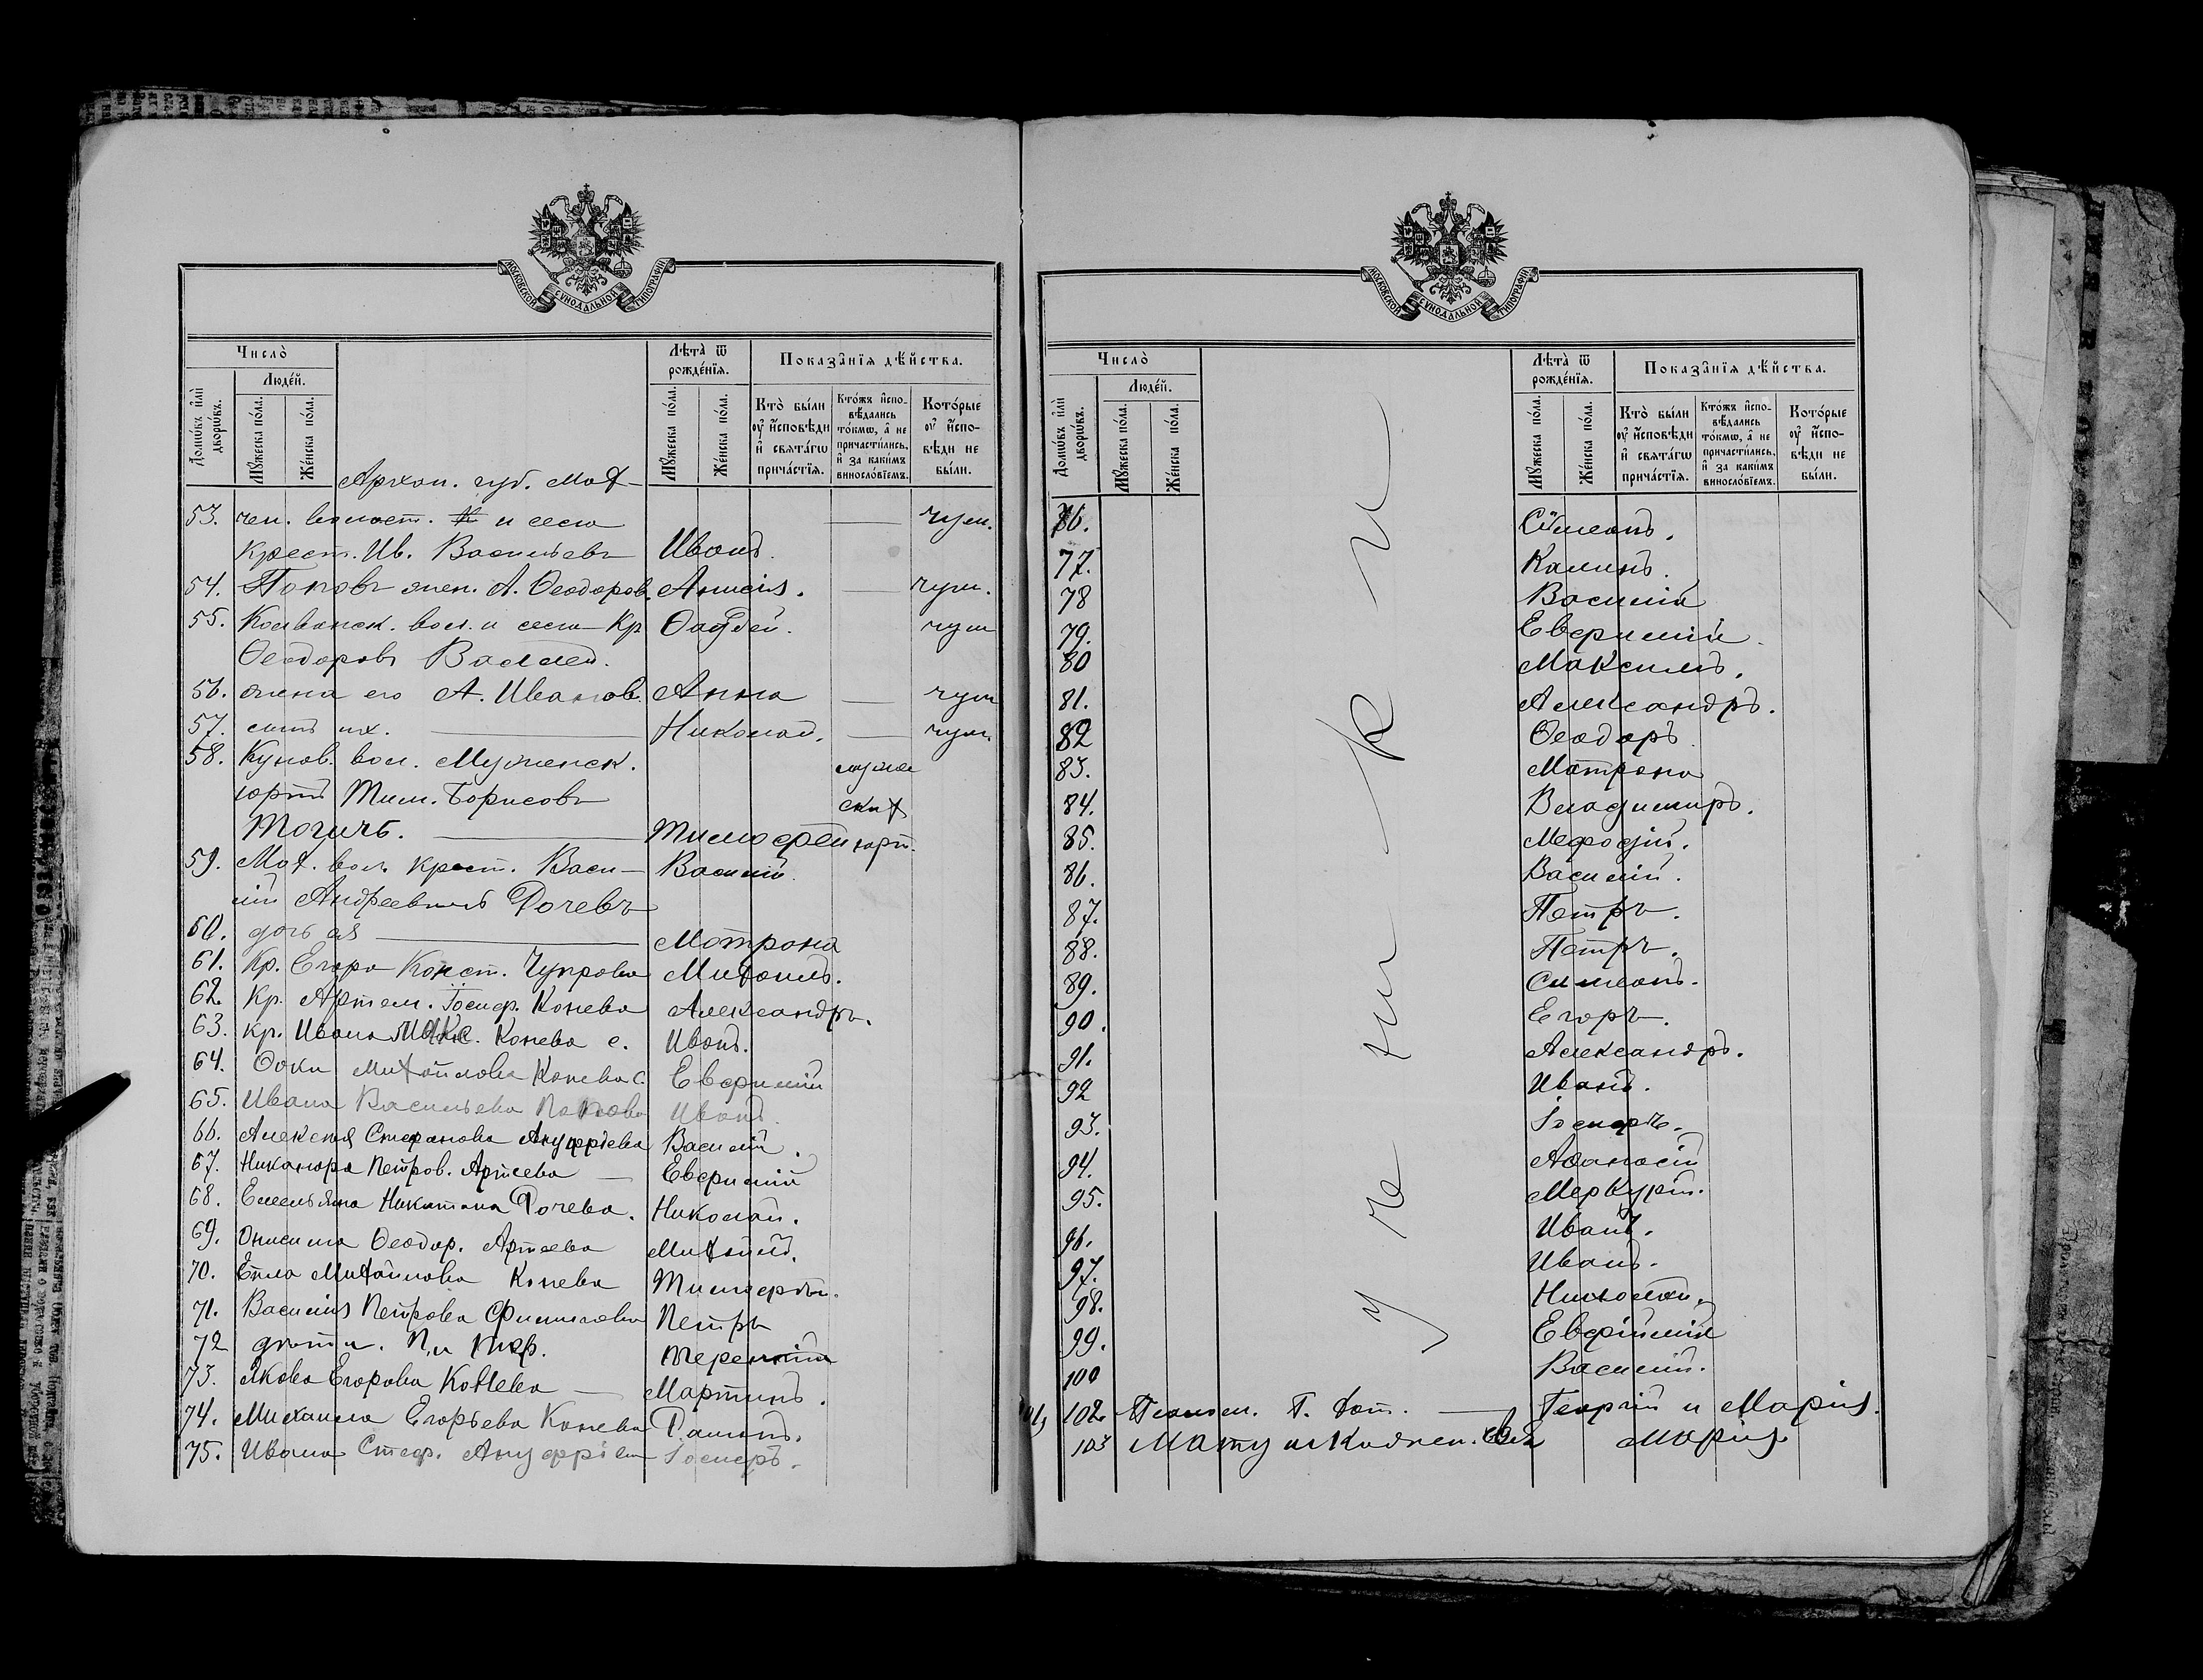 МОСКОВСКОЙ СѴНОДАЛЬНОЙ ТИПОГРАФІИ
Число̀
Домѡ́въ и҆лѝ дворѡ́въ.
Людє́й.
Мꙋ́жеска по́ла.
Же́нска по́ла.
Лѣ́та ѿ рожде́нїѧ.
Мꙋ́жеска по́ла.
Же́нска по́ла.
Показа̑нїѧ дѣ́йства.
Кто̀ бы́ли ᲂу҆ и҆́сповѣди и҆ свѧта́гѡ прича́стїѧ.
Кто́жъ и҆спо-
вѣ́дались
то́кмѡ, а҆ не
причасти́лись,
и҆ за каки́мъ
винослові́емъ.
Кото́рые
ᲂу҆ и҆́спо-
вѣди не
бы́ли.
Архан. губ. Мох-
53. чен. волост. и села чуж.
Крест. Ив. Васильевъ Иванъ.
54. Поповъ жен. А. Ѳеодоров. Анисія. чуж.
55. Колванск. вол. и села Кр Ѳаддей. чуж
Ѳеодоровъ Валлей.
56. жена его А. Иванов. Анна чуж
57. сынъ их. Николай. чуж.
58. Кунов. вол. Мужевск. муже
юртъ Тим. Борисовъ ских
Тогичъ. Тимофей юрт.
59. Мох. вол. крест. Васи- Василій.
лій Андреевичъ Рочевъ
60. дочь ея Матрона
61. Кр. Егора Конст. Чупрова Михаилъ.
62. Кр. Артем. Іосиф. Конева Александръ.
63. Кр. Ивана Макс. Конева с. Иванъ.
64. Ѳоки Михайлова Конева с. Евфимій
65. Ивана Васильева Попова Иванъ.
66. Алексѣя Стефанова Ануфріева Василій.
67. Никанора Петров. Артеева Евфимій
68. Емельяна Никитина Рочева. Николай.
69. Онисима Ѳеодор. Артеева Михаилъ.
70. Михайлова Конева Тимофей.
71. Василія Петрова Филиппова Петръ
72 Терентій
73. Якова Егорова Конева Мартинъ.
74. Михаила Егорьева Конева
75. Ивана Стеф. Ануфріева Іосифъ.
МОСКОВСКОЙ СѴНОДАЛЬНОЙ ТИПОГРАФІИ
Число̀
Домѡ́въ и҆лѝ дворѡ́въ.
Людє́й.
Мꙋ́жеска по́ла.
Же́нска по́ла.
Лѣ́та ѿ рожде́нїѧ.
Мꙋ́жеска по́ла.
Же́нска по́ла.
Показа̑нїѧ дѣ́йства.
Кто̀ бы́ли ᲂу҆ и҆́сповѣди и҆ свѧта́гѡ прича́стїѧ.
Кто́жъ и҆спо-
вѣ́дались
то́кмѡ, а҆ не
причасти́лись,
и҆ за каки́мъ
винослові́емъ.
Кото́рые
ᲂу҆ и҆́спо-
вѣди не
бы́ли.
ученики
76. Сѵмеонъ.
77. Калинъ.
78 Василій
79. Евфимій.
80 Максимъ.
81. Александръ.
82 Ѳеодоръ.
83. Матрона
84. Владимиръ.
85. Мефодій.
86. Василій.
87. Петръ.
88. Петръ.
89. Симеонъ.
90. Егоръ.
91. Александръ.
92 Иванъ.
93. Іосифъ.
94. Аѳанасій
95. Меркурій.
96. Иванъ.
97. Иванъ.
98. Николай.
99. Евфимій
100 Василій.
101, 102. Георгій и Марія.
103 Марія.